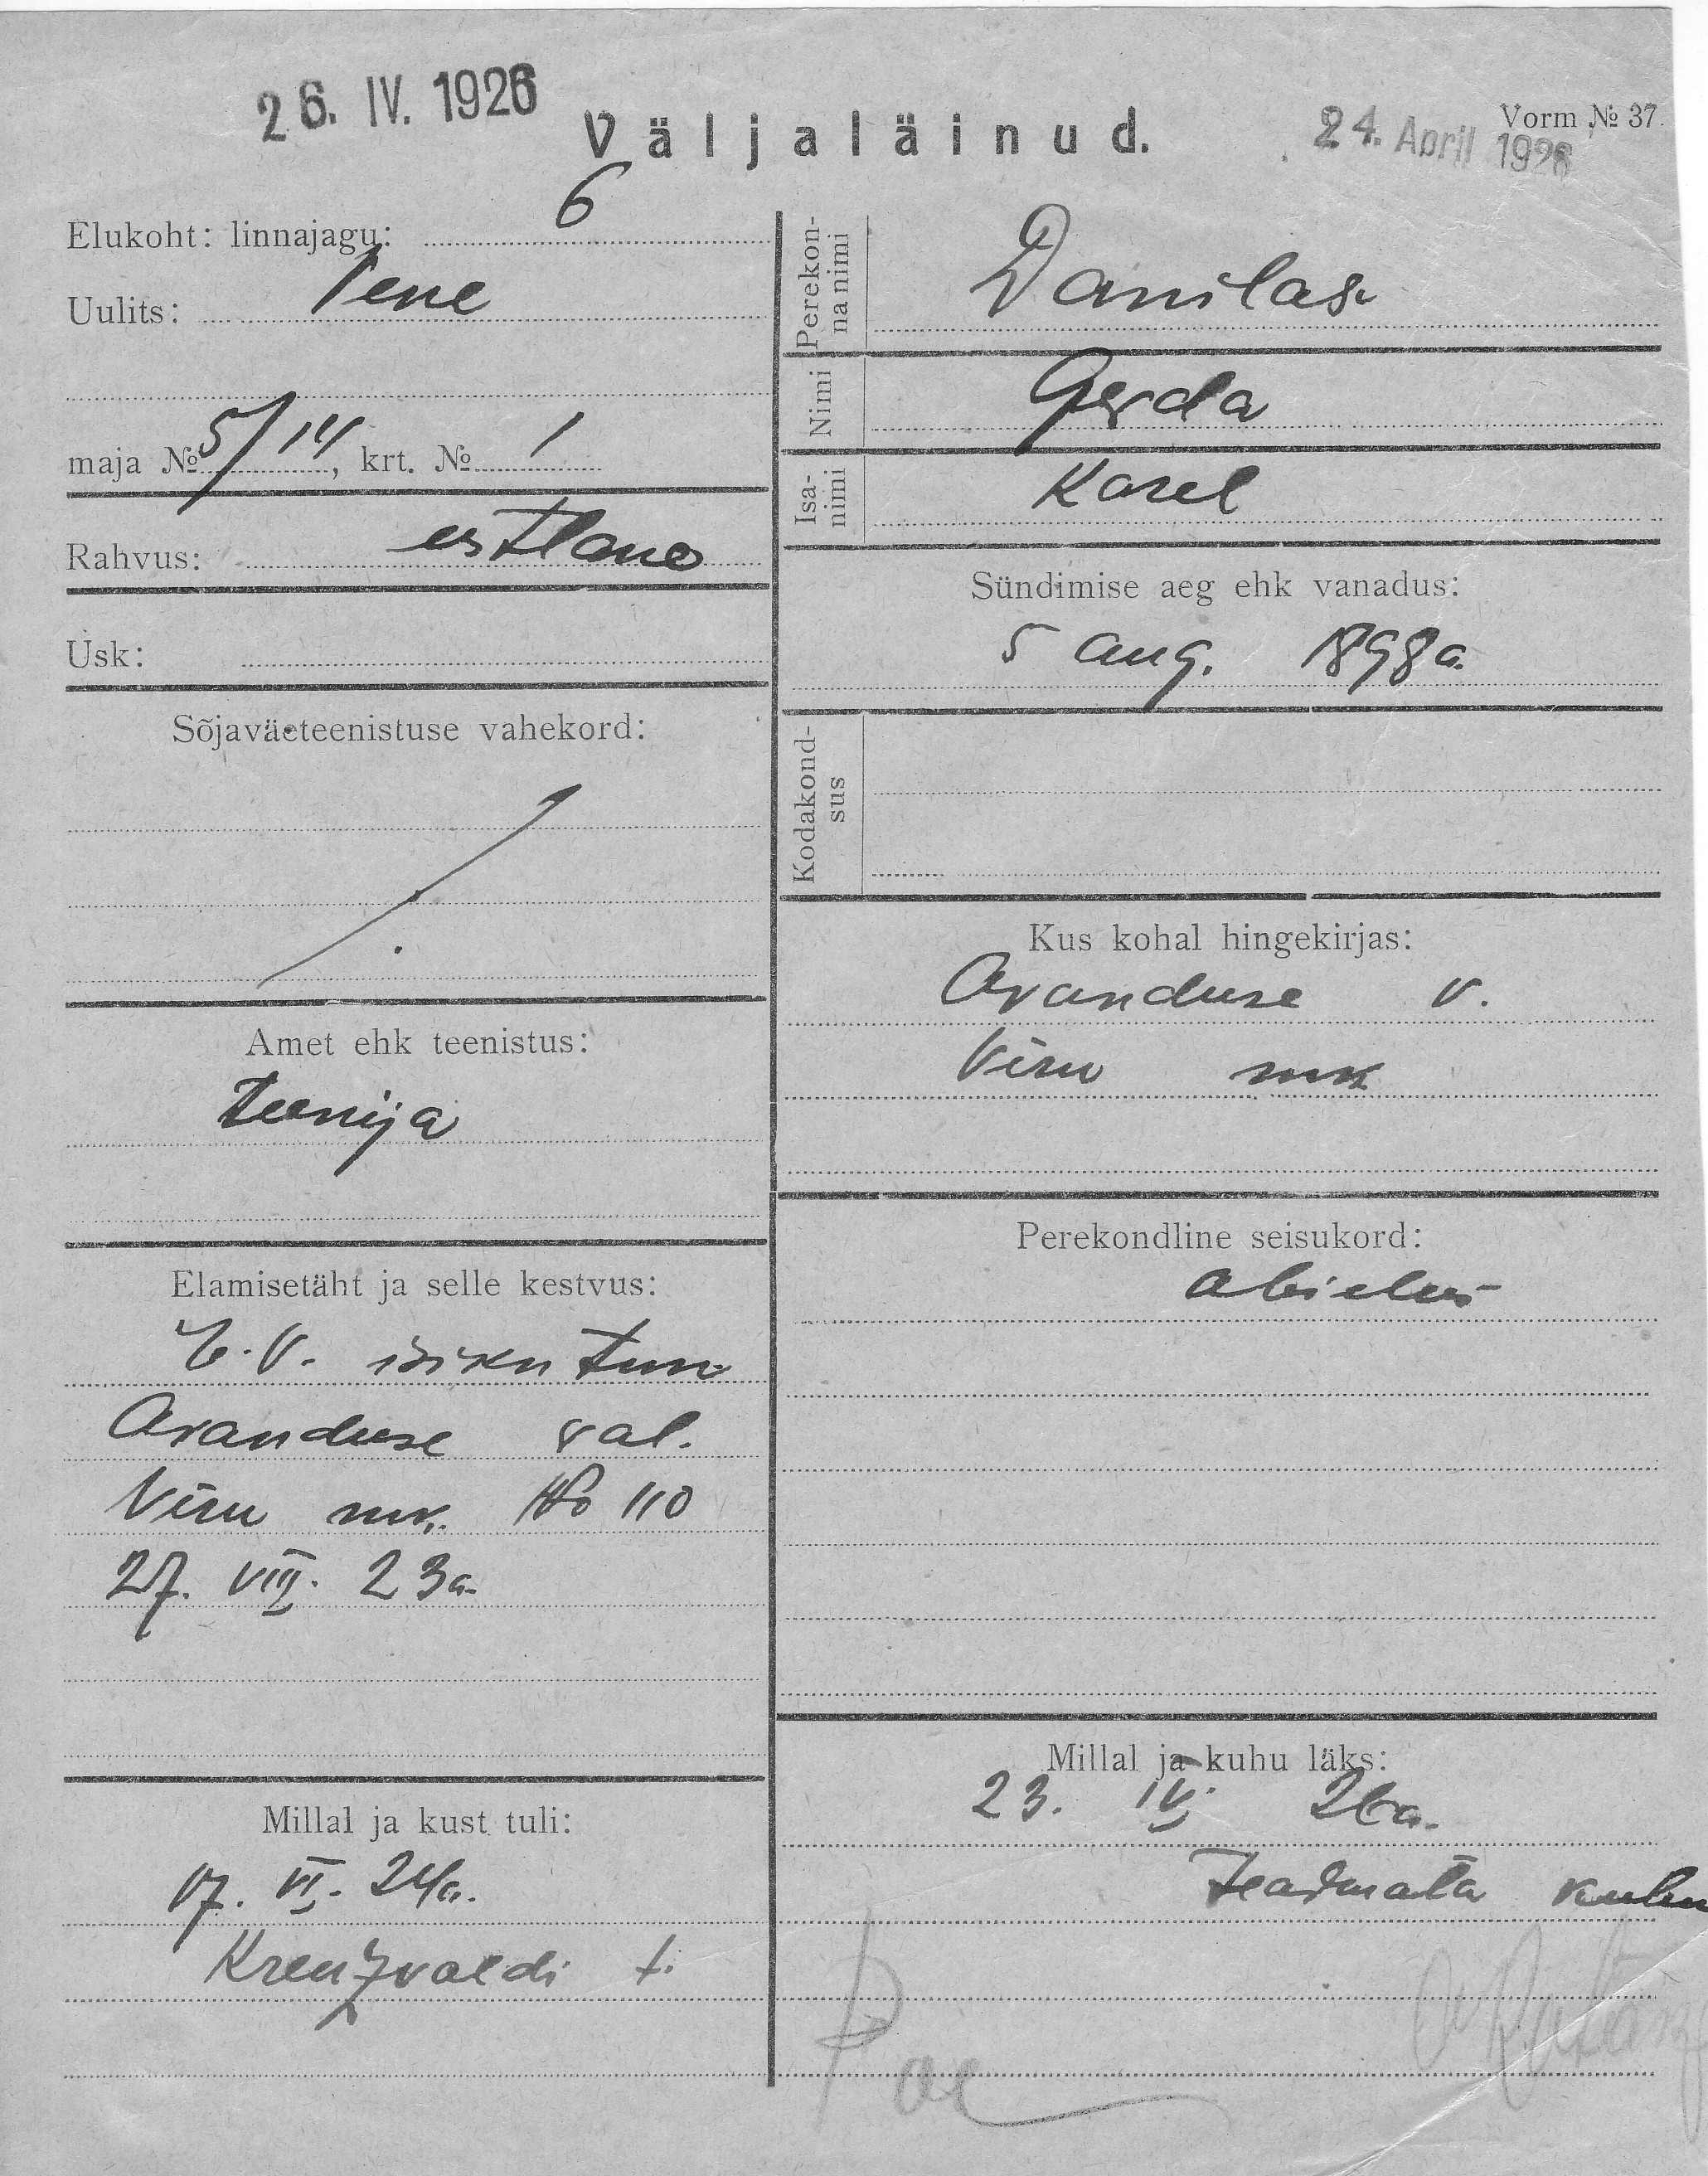 26. IV. 1926
Väljaläinud.
Vorm № 37.
24. April 1926
Elukoht: linnajagu: 6
Uulits: Vene
maja № 5/14, krt. № 1
Rahvus: estlane
Usk:
Sõjaväeteenistuse vahekord:
Amet ehk teenistus:
Teenija
Elamisetäht ja selle kestvus:
E.V. isiku tun
Avanduse val.
Viru mk. No 110
27. VIII. 23a.
Millal ja kust tuli:
17. VI. 24a.
Kreuzvaldi t.
Perekonna nimi Danilas
Nimi Gerda
Isanimi Karel
Sündimise aeg ehk vanadus:
5 aug. 1898a.
Kodakondsus
Kus kohal hingekirjas:
Avanduse v.
Viru mk
Perekondline seisukord:
abielus
Millal ja kuhu läks:
23. IV. 26a.
Teadmata kuhu